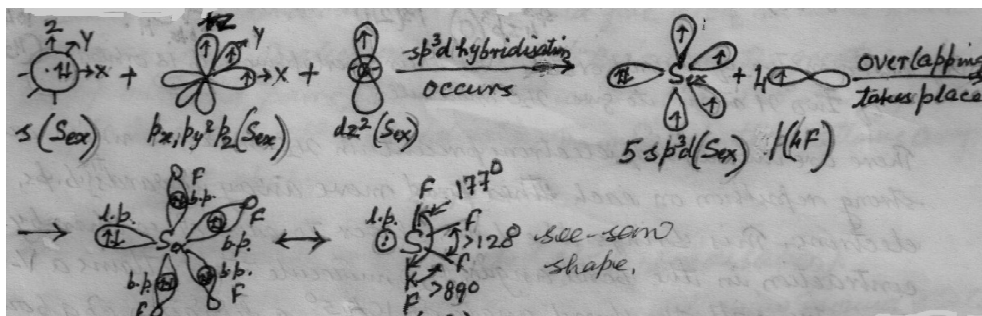 Z Y X + +Z Y X + sp³d hybridisation occurs + 4 overlapping takes place
s (Sex) px, py & pz (Sex) dz² (Sex) 5 sp³d (Sex) p(4F)
Sex
l.p. F b.p. Sex F b.p. b.p. F b.p. F
l.p. S F 177° F >128 F >890 F see-saw shape.